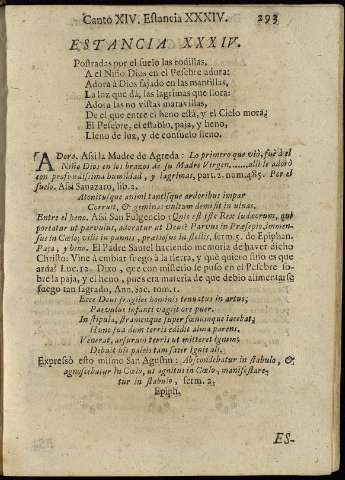 Canto XIV. Estancia XXXIV. 293
ESTANCIA XXXIV.
Postradas por el suelo las rodillas,
A el Niño Dios en el Pesebre adora:
Adora à Dios fajado en las mantillas,
La luz que dà, las lagrimas que llora:
Adora las no vistas maravillas,
De el que entre el heno està, y el Cielo mora;
El Pesebre, el establo, paja, y heno,
Lleno de luz, y de consuelo lleno.
ADora. Assi la Madre de Agreda: Lo primero que viò, fuè à el
Niño Dios en los brazos de su Madre Virgen......allì le adorò
con profundissima humildad, y lagrimas, part. 2. num. 485. Por el
suelo. Assi Sanazaro, lib. 2.
Atonitusque animi tantisque ardoribus impar
Corruit, & geminas vultum demisit in ulnas.
Entre el heno. Assi San Fulgencio: Quis est iste Rex Iudæorum, qui
portatur ut parvulus, adoratur ut Deus? Parvus in Præsepio, immen-
sus in Cœlo; vilis in pannis, prætiosus in stellis, serm. 5. de Epiphan.
Paja, y heno. El Padre Sautel haciendo memoria de haver dicho
Christo: Vine à embiar fuego à la tierra, y què quiero sino es que
arda? Luc. 12. Dixo, que con misterio le puso en el Pesebre so-
bre la paja, y el heno, pues era materia de que debio alimentarse
fuego tan sagrado, Ann. Sac. tom. 1.
Ecce Deus fragiles hominis tenuatus in artus;
Parvulus infanti vagiit ore puer.
In stipula, stramenque super fœnumque iacebat;
Hunc sua dum terris edidit alma parens.
Venerat, arsuram terris ut mitteret ignem;
Debuit his paleis tam sacer ignis ali.
Expressò esto mismo San Agustin: Abscondebatur in stabulo, &
agnoscebatur in Cœlo, ut agnitus in Cœlo, manifestare-
tur in stabulo, serm. 2.
Epiph.
ES-